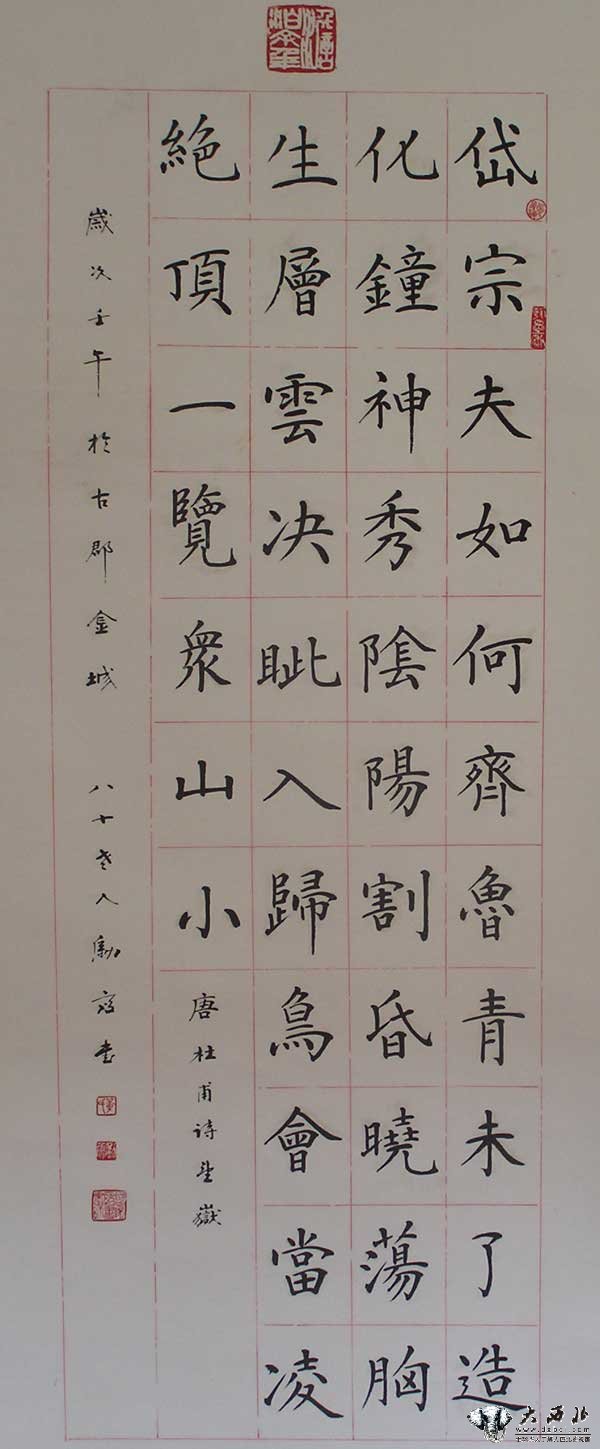 岱宗夫如何齊魯青未了造
化鐘神秀陰陽割昏曉蕩胸
生層雲决眦入歸鳥會當凌
絶頂一覽衆山小
唐杜甫诗望嶽
歲次壬午於古郡金城 八十老人勵書
大西北
www.dxbpc.com